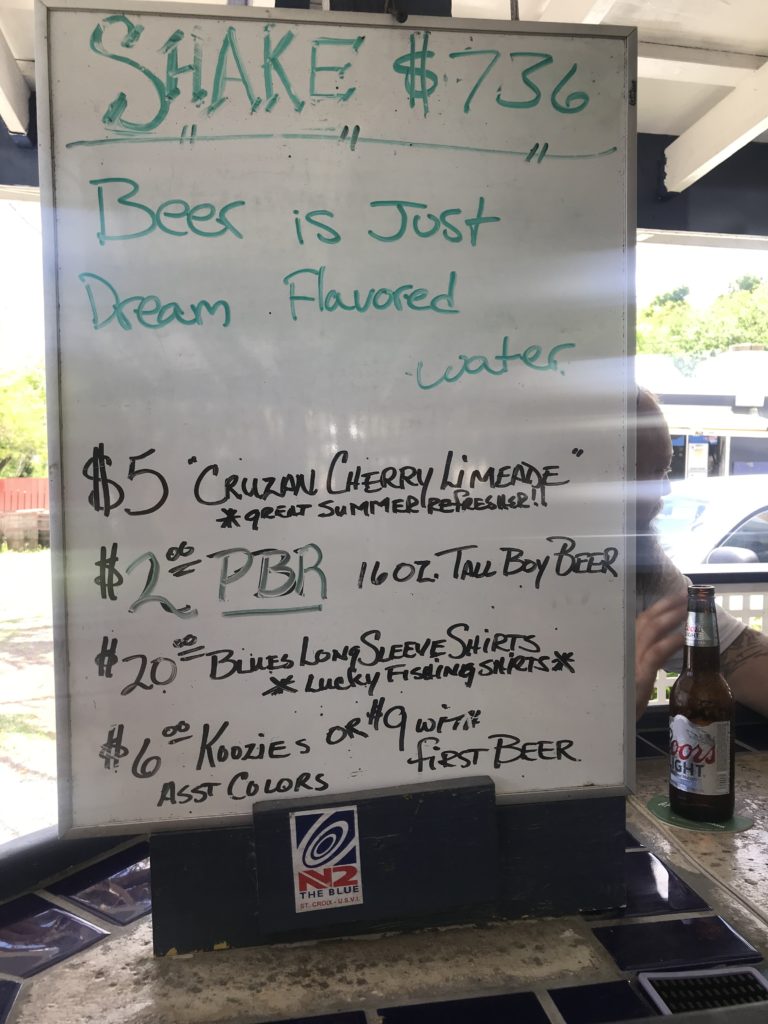 SHAKE $736
Beer is Just
Dream Flavored
water.
$5 "CRUZAN CHERRY LIMEADE"
*GREAT SUMMER REFRESHER!!
$2.00 PBR 16 OZ. TALL BOY BEER
$20.00 BLUES LONG SLEEVE SHIRTS
*LUCKY FISHING SHIRTS*
$6.00 KOOZIES OR $9 WITH
FIRST BEER.
ASST COLORS
N2
THE BLUE
ST. CROIX - U.S.V.I.
Coors
LIGHT